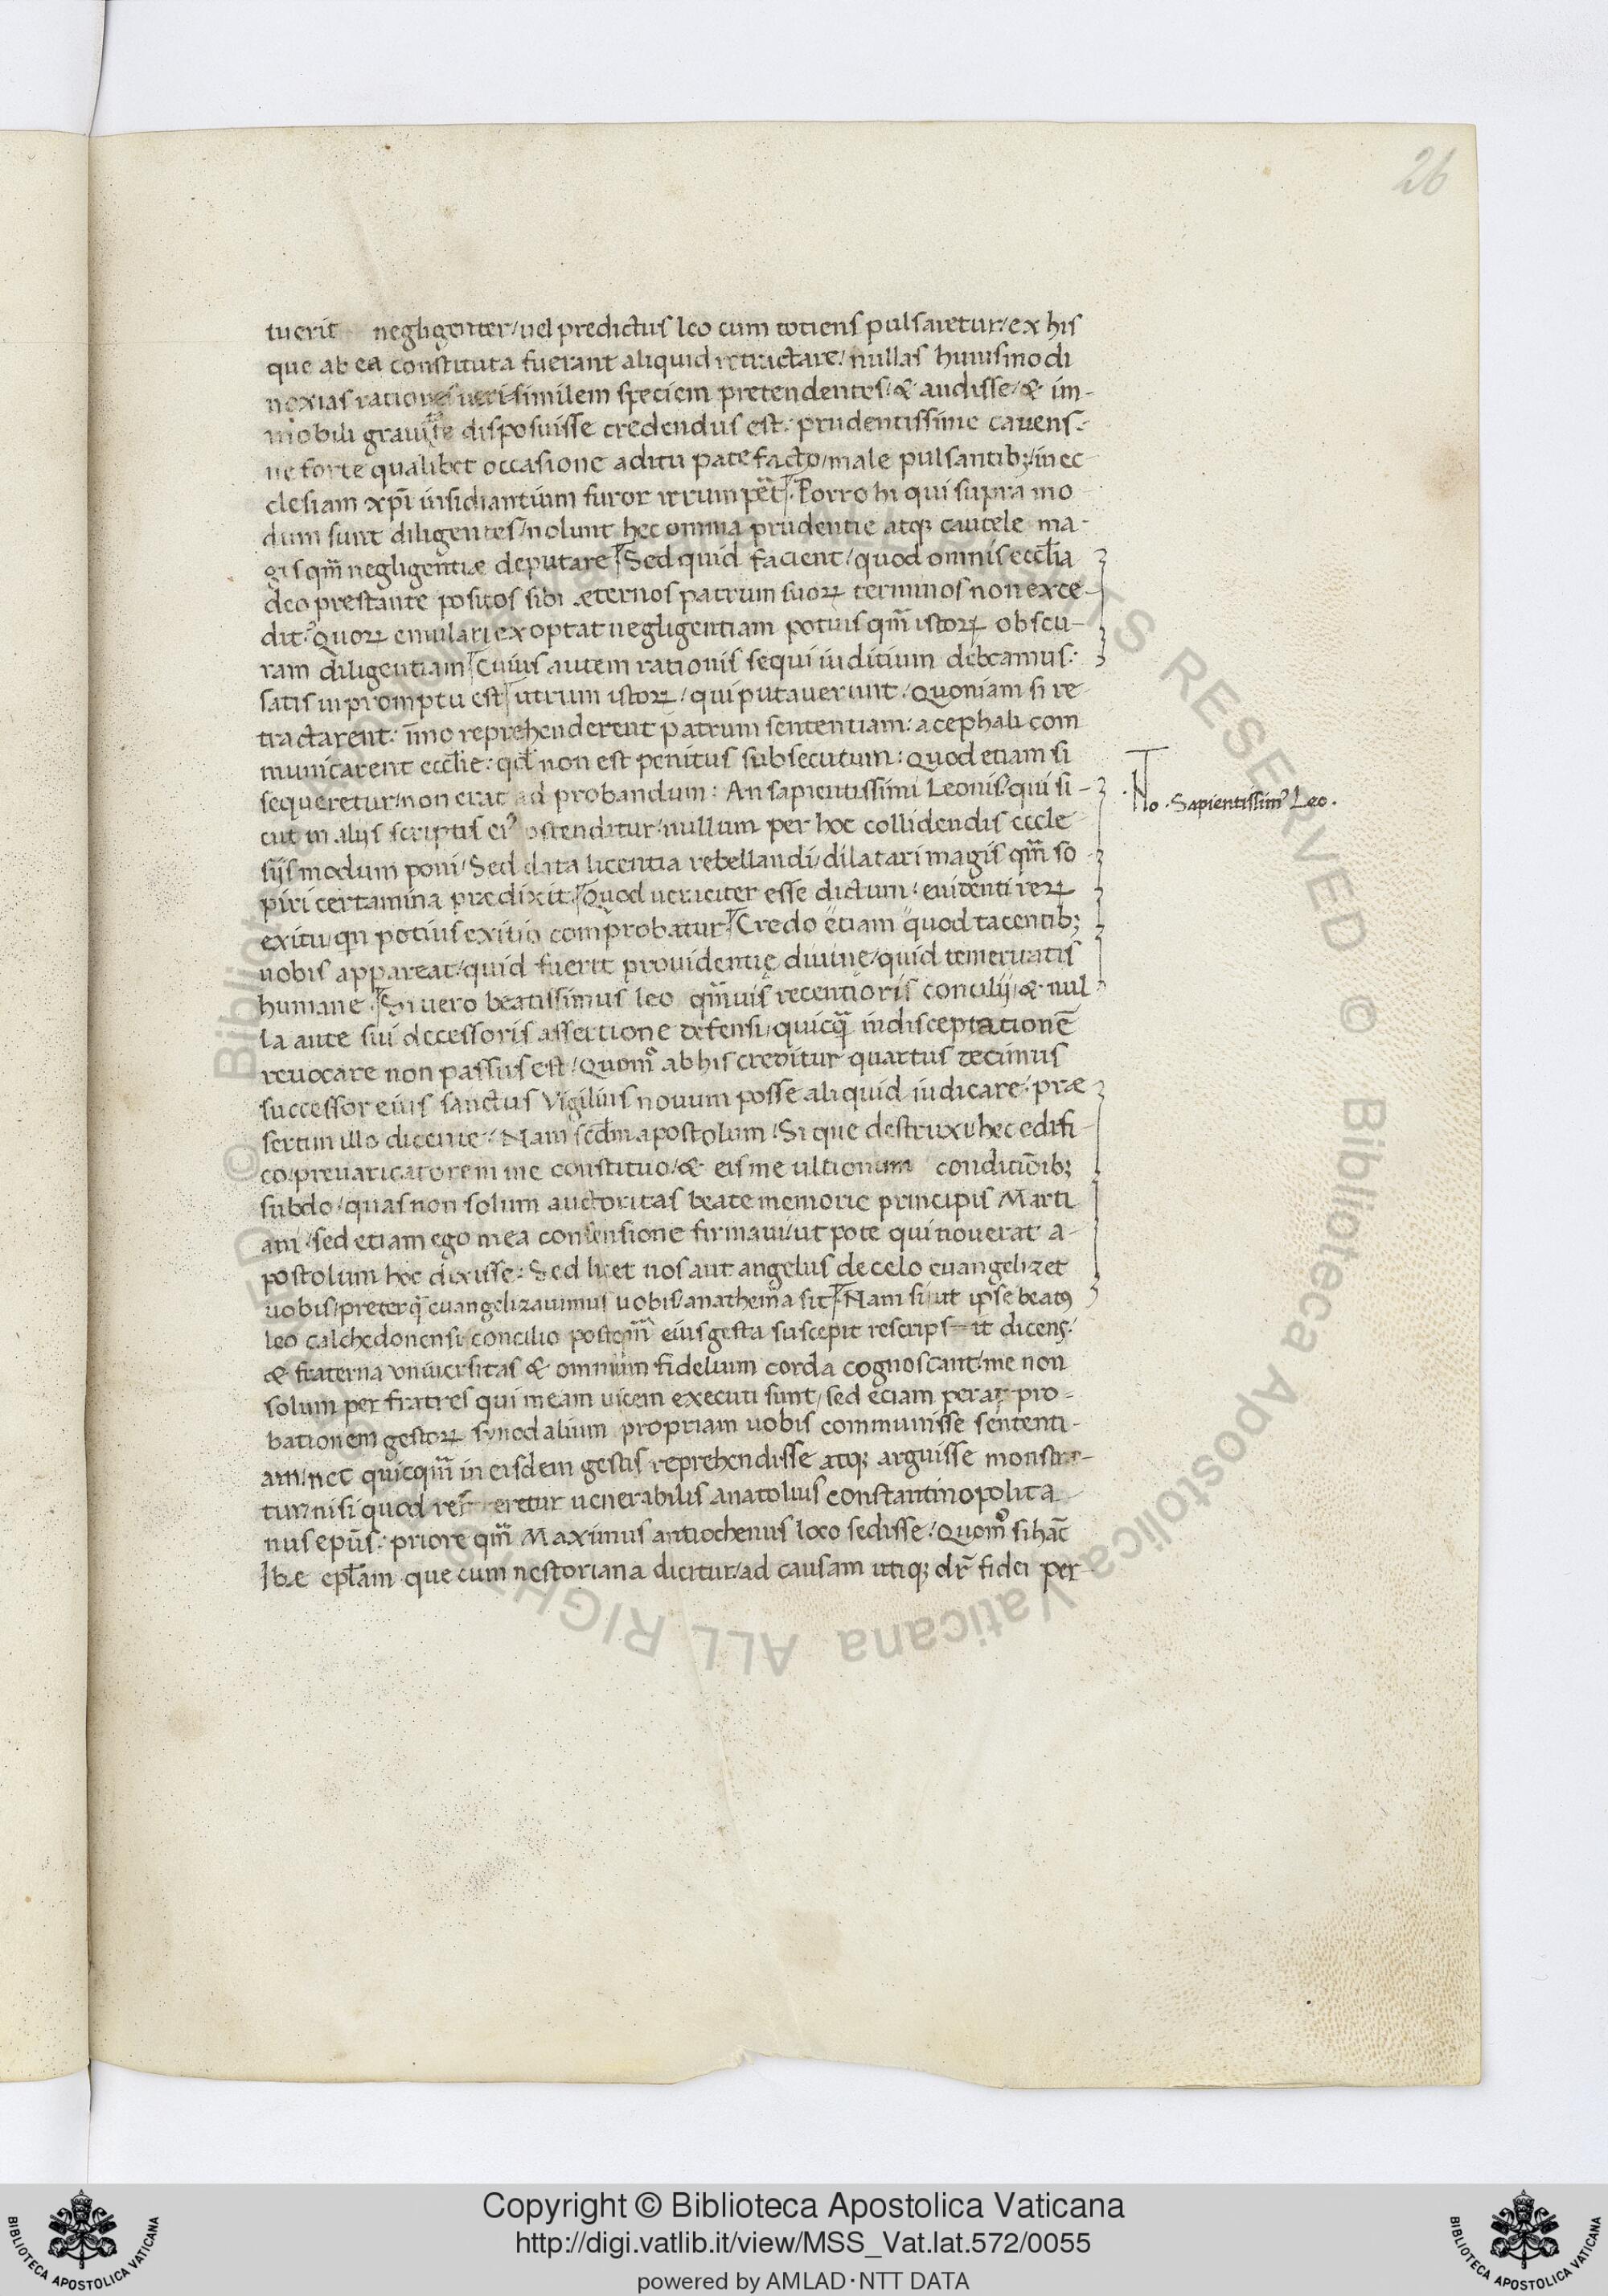 26
tuerit negligenter/ uel predictus leo cum totiens pulsaretur/ ex his
que ab ea constituta fuerant aliquid retractare/ nullas huiusmodi
noxias rationes ueri similem speciem pretendentes/ & audisse/ & im-
mobili grauitate disposuisse credendus est: prudentissime cauens:
ne forte qualibet occasione aditu patefacto/ male pulsantib;/ in ec
clesiam xp̄i insidiantium furor irrumpat. Porro hi qui supra mo
dum sunt diligentes/ nolunt hec omnia prudentie atq; cautele ma-
gis qm̄ negligentiæ deputare Sed quid facient/ quod omnis eccl̄ia
deo prestante positos sibi æternos patrum suoꝝ terminos non exce-
dit? Quoꝝ emulari exoptat negligentiam potius qm̄ istoꝝ obscu-
ram diligentiam Cuius autem rationis sequi iuditium debeamus:
satis in promptu est utrum istoꝝ/ qui putauerunt/ Quoniam si re-
tractarent: īmo reprehenderent patrum sententiam: acephali com
municarent eccl̄ie: qđ non est penitus subsecutum: Quod etiam si
sequeretur/ non erat ad probandum: An sapientissimi Leonis/ qui si-
cut in alijs scriptis eiꝰ ostenditur/ nullum per hoc collidendis eccle-
sijs modum poni/ Sed data licentia rebellandi/ dilatari magis qm̄ so
piri certamina predixit. Quod ueraciter esse dictum/ euidenti reꝝ
exitu/ qn potius exitio comprobatur Credo etiam quod tacentib;
nobis appareat/ quid fuerit prouidentię diuine/ quid temeritatis
humane. Si uero beatissimus leo qm̄uis recentioris concilij/ & nul
la ante sui decessoris assertione defensi/ quicq̄ in disceptationē
reuocare non passus est/ Quomº ab his creditur quartus decimus
successor eius sanctus Vigilius nouum posse aliquid iudicare/ præ
sertim illo dicente/ Nam scdm̄ apostolum/ Si que destruxi/ hec edifi-
co/ preuaricatorem me constituo/ & eis me ultionum conditiōib;
subdo/ quas non solum auctoritas beate memorie principis Marti
ani/ sed etiam ego mea consensione firmaui/ ut pote qui nouerat a-
postolum hoc dixisse: Sed licet nos aut angelus de celo euangelizet
uobis/ preterq̄ euangelizauimus uobis/ anathema sit Nam si ut ipse beatꝰ
leo calchedonensi concilio postqm̄ eius gesta suscepit rescrips-it dicens/
& fraterna vniuersitas & omnium fidelium corda cognoscant/ me non
solum per fratres qui meam uicem executi sunt/ sed etiam per ap pro-
bationem gestoꝝ synodalium propriam uobis communisse sententi-
am/ nec quicqm̄ in eisdem gestis reprehendisse atq; arguisse monstra-
tur/ nisi quod uenerabilis anatolius constantinopolita-
nus ep̄us: priore qm̄ Maximus antiochenus loco sedisse/ Quomº si hāc
Ibæ epl̄am que cum nestoriana dicitur/ ad causam utiq; dr̄ fidei per-
No. Sapientissimꝰ Leo.
Copyright © Biblioteca Apostolica Vaticana
http://digi.vatlib.it/view/MSS_Vat.lat.572/0055
powered by AMLAD·NTT DATA
BIBLIOTECA APOSTOLICA VATICANA
BIBLIOTECA APOSTOLICA VATICANA
© Biblioteca Apostolica Vaticana ALL RIGHTS RESERVED